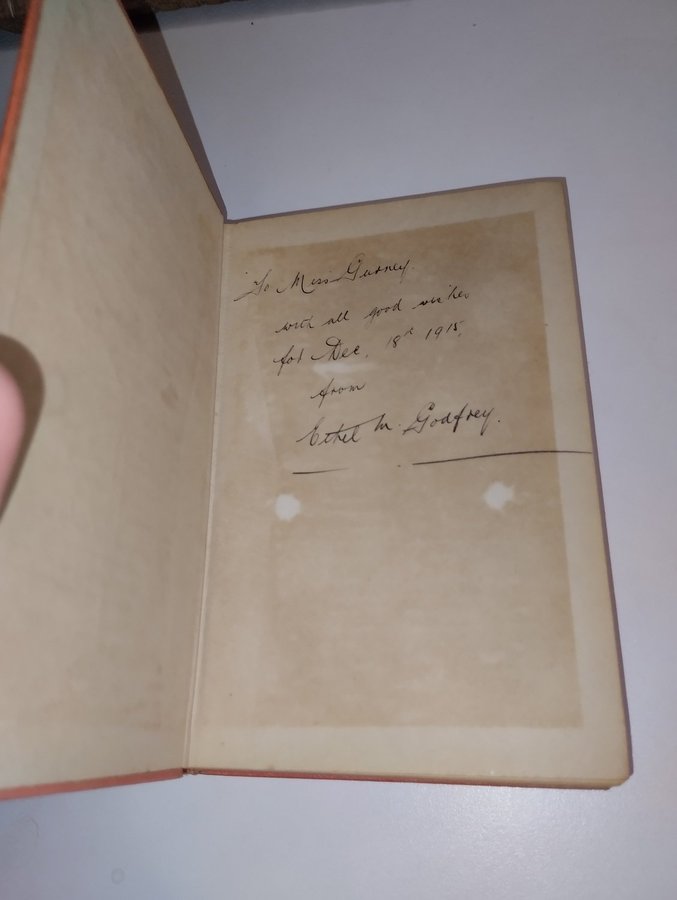 To Miss Gurney.
with all good wishes
for Dec. 18th 1915.
from
Ethel M. Godfrey.